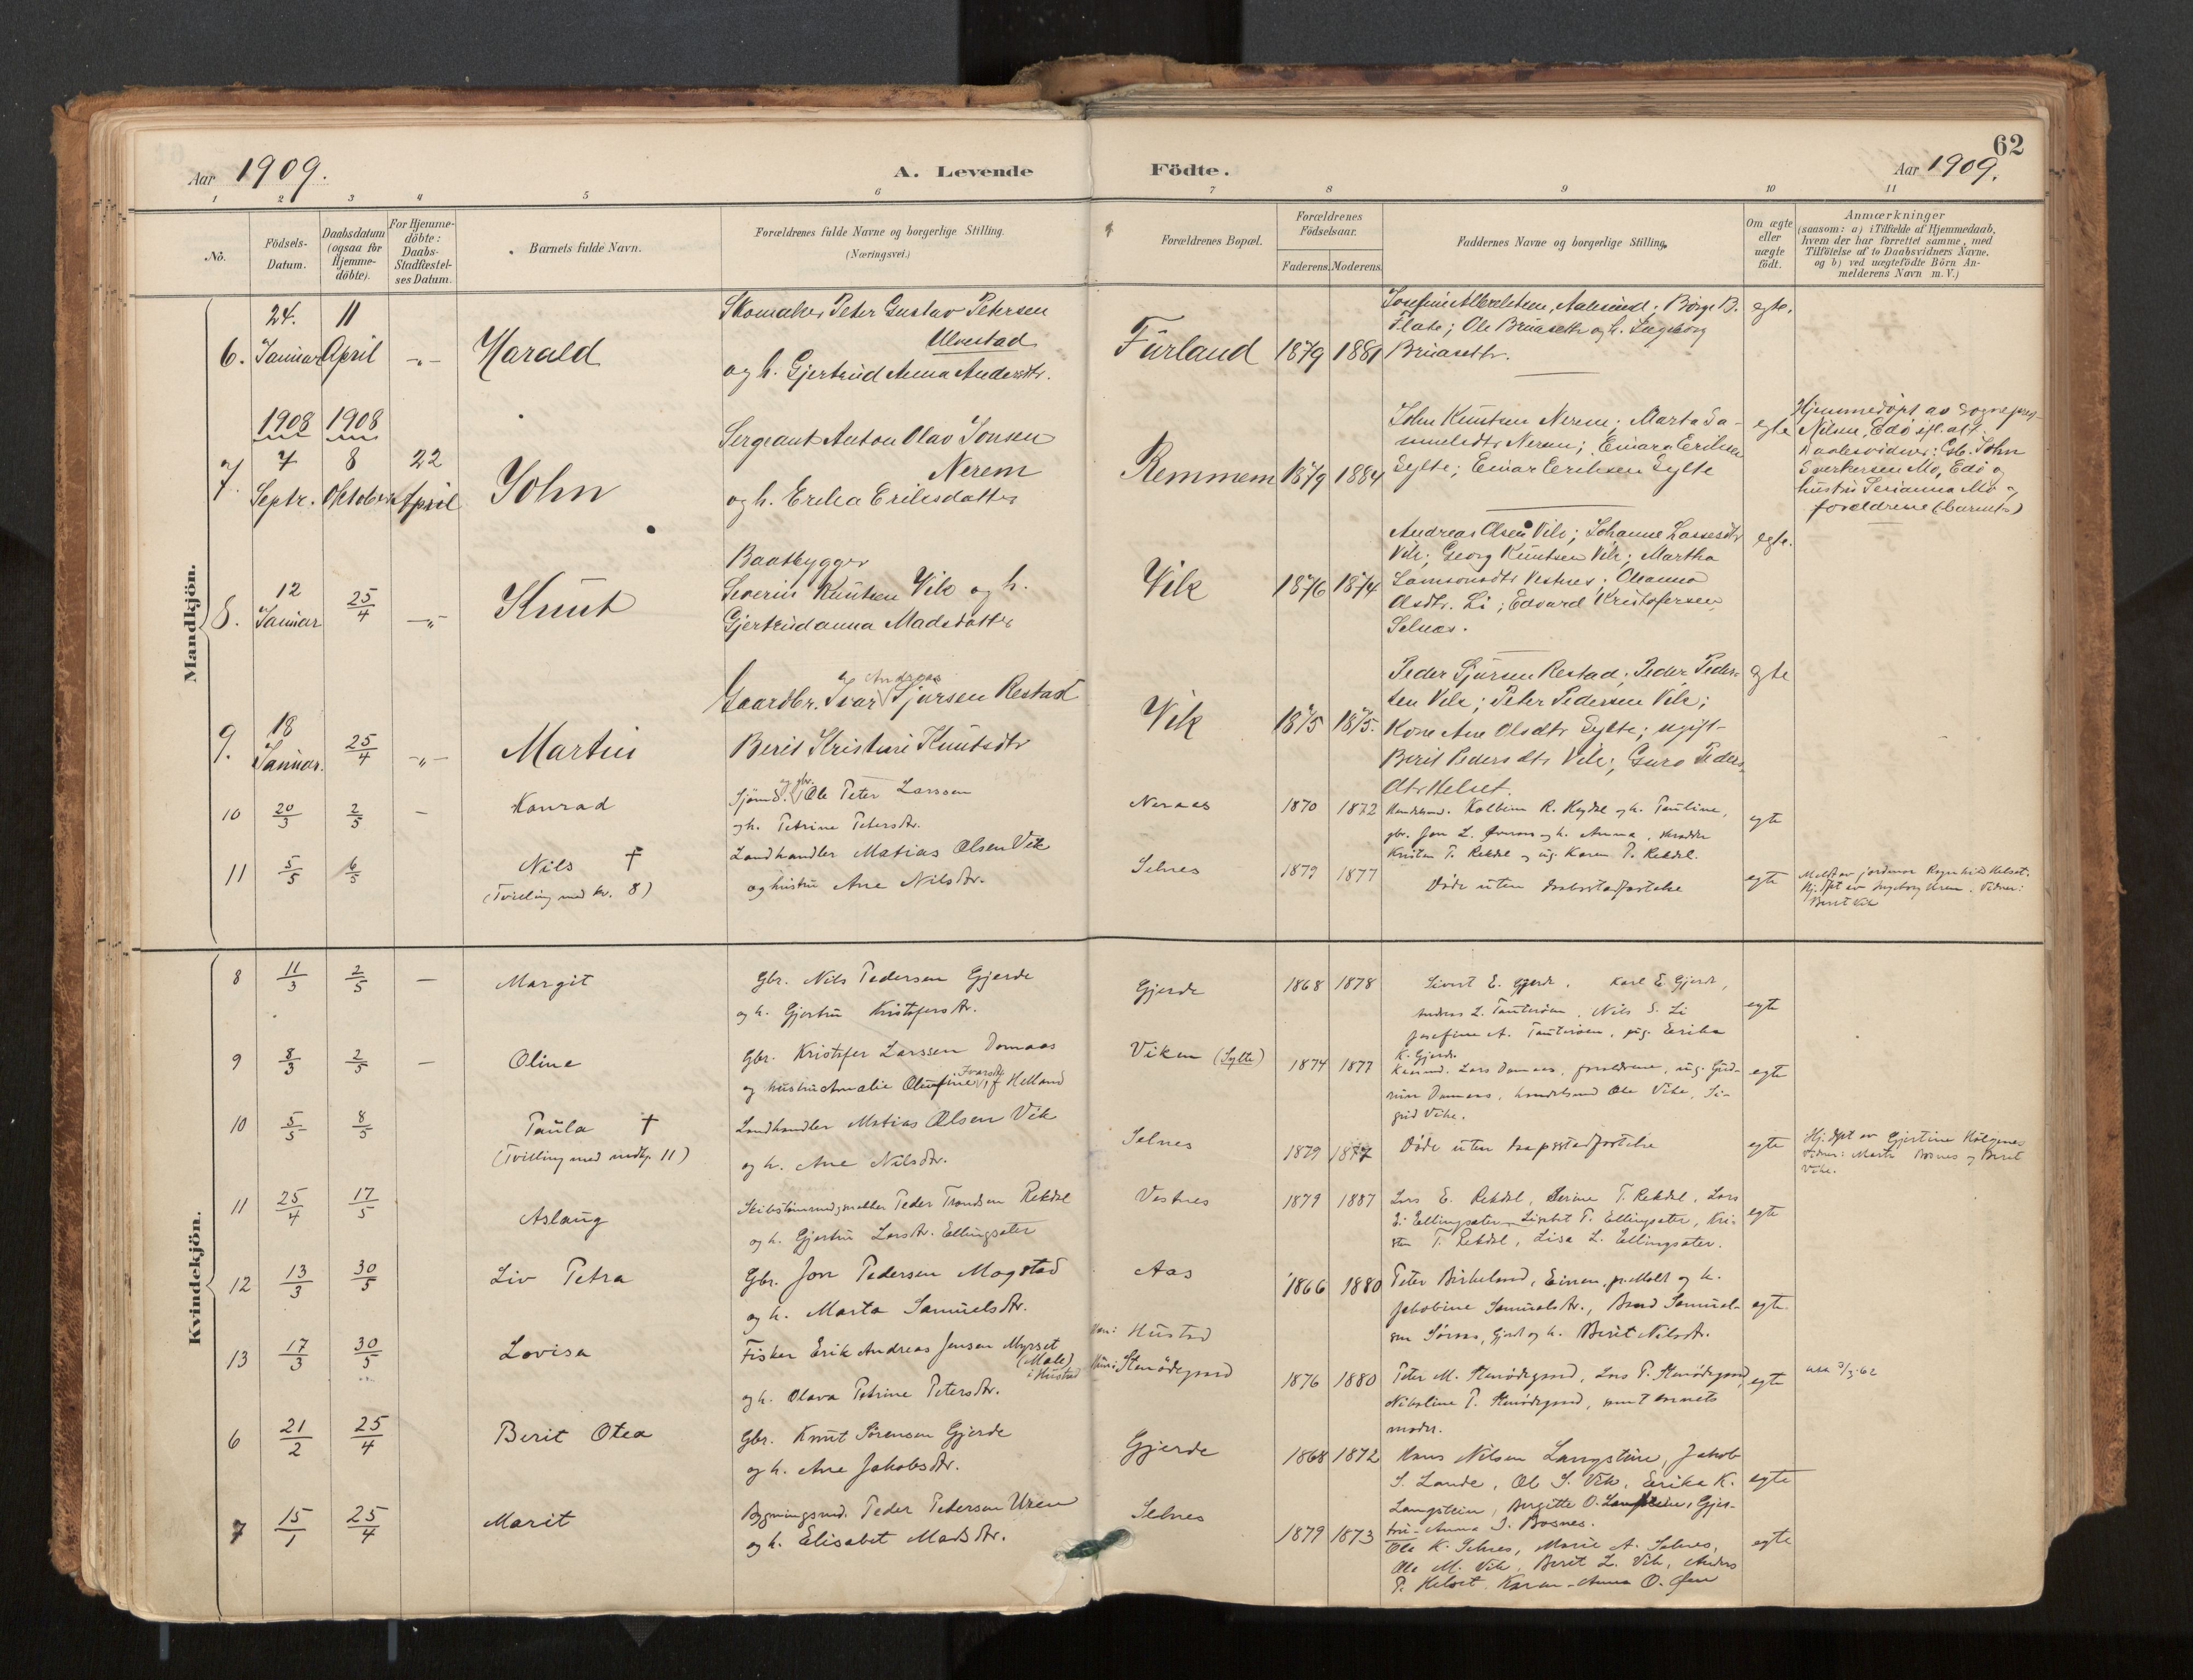 62
Aar 1909.
A. Levende Födte.
Aar 1909.
1 2 3 4 5 6 7 8 9 10 11
No.
Födsels-Datum.
Daabsdatum (ogsaa for Hjemme-döbte).
For Hjemme-döbte: Daabs-Stadfæstel-ses Datum.
Barnets fulde Navn.
Forældrenes fulde Navne og borgerlige Stilling.
(Næringsvei.)
Forældrenes Bopæl.
Forældrenes Födselsaar.
Faderens. Moderens.
Faddernes Navne og borgerlige Stilling.
Om ægte eller uægte födt.
Anmærkninger
(saasom: a) i Tilfælde af Hjemmedaab,
hvem der har forrettet samme, med
Tilföielse af to Daabsvidners Navne,
og b) ved uægtefödte Börn An-
melderens Navn m. V.)
Mandkjön.
6. 24. Januar 11 April -„- Harald
Skomaker Peter Gustav Petersen
Ulvestad
og h. Gjertrud Anna Andersdtr.
Furland 1879 1881
Aalesund; Börge B.
Flate; Ole Bruaseth og h. Ingeborg
Bruasettr.
egte.
7. 1908 7 Septr. 1908 8 Oktober 22 April John
Sergeant Anton Olav Jonsen
Nerem
og h. Erika Eriksdatter
Remmem 1879 1884
John Knutsen Nerem; Marta Sa-
muelsdtr Nerem; Einara Eriksen
Sylte; Einar Eriksen Sylte
egte
Hjemmedöpt av sogneprest
Nilsen, Edö
Daabsvidner: Gb. John
Sverkersen Mo, Edö og
hustru Serianna Mo og
foreldrene (barnets)
8. 12 Januar 25/4 -„- Knut
Baatbygger
Severin Knutsen Vik og h.
Gjertrudanna Madsdatter
Vik 1876 1874
Andreas Olsen Vik; Johanne Lassesdtr
Vik; Georg Knutsen Vik; Martha
Samsonsdtr Vestnes; Oleanna
Olsdtr. Li; Edvard Kristofersen
Selnes.
egte.
9. 18 Januar. 25/4 -„- Martin
og Andreas
Gaardbr. Ivar Sjursen Restad
Berit Kristine Knutsdtr
Vik 1875 1875.
Peder Sjursen Restad; Peder Peder-
sen Vik; Peter Pedersen Vik;
Kone Ane Olsdtr Sylte; ugift
Berit Pedersdtr Vik; Guro Peders-
dtr Helset.
egte
10 20/3 2/5 — Konrad
og gbr.
Sjömd. Ole Peter Larssen
og h. Petrine Petersdtr.
Neraas 1870 1872
Handelsmd. Kolbein R. Rekdal og h. Pauline,
gbr. Jon L. og h. Anna, skrædder
Kristen T. Rekdal og ug. Karen P. Rekdal.
egte
11 5/5 6/5 Nils †
(Tvilling med kv. 8)
Landhandler Matias Olsen Vik
og hustru Ane Nilsdtr.
Selnes 1879 1877
Döde uten daabsstadfæstelse
egte
Meldt av jordmor Ragnhild Helset.
Hj. döpt av Ingeborg Uren. Vidner:
Berit Vik
Kvindekjön.
8 11/3 2/5 — Margit
Gbr. Nils Pedersen Gjerde
og h. Gjertru Kristofersdtr.
Gjerde 1868 1878
Sivert E. Gjerde, Karl E. Gjerde,
Andreas L. Tautersen, Nils S. Li
Josefine A. Tautersen, pig. Erika
K. Gjerde.
egte
9 8/3 2/5 — Oline
Gbr. Kristofer Larssen Domaas
Ivarsdtr
og hustru Amalie Olufine Helland
Viken (Sylte) 1874 1877
Lars Domaas, foreldrene, ug. Gud-
run Domaas, handelsmd Ole Vike, Si-
grid Vike.
egte
10 5/5 8/5 Paula †
(Tvilling med mdkj. 11)
Landhandler Matias Olsen Vik
og h. Ane Nilsdtr.
Selnes 1879 1877
Döde uten daapsstadfæstelse
egte
Hj. döpt av Gjertine Helgenes
Vidner: Marta Bosnes og Berit
Vike.
11 25/4 17/5 Aslaug
Skibstömmermd Peder Trondsen Rekdal
og h. Gjertru Larsdtr. Ellingsæter
Vestnes 1879 1887
Lars E. Rekdal, Serine T. Rekdal, Lars
E. Ellingsæter, Lisebet P. Ellingsæter, Kri-
sten T. Rekdal, Lisa L. Ellingsæter.
egte
12 13/3 30/5 Liv Petra
Gbr. Jon Pedersen Mogstad
og h. Marta Samuelsdtr.
Aas 1866 1880
Peter Birkeland, Eirem, pr. Molde og h.
Jakobine Samuelsdtr., Bernd Samuel-
sen Sörnes, Gjerde og h. Berit Nilsdtr.
egte
13 17/3 30/5 Lovisa
Fisker Erik Andreas Jensen Myrset
(Male)
i Hustad
og h. Olava Petrine Petersdtr.
Han: Hustad
Hun: Stenödegaard
1876 1880
Peter M. Stenödegaard, Lars P. Stenödegaard,
Nikoline P. Stenödegaard, samt barnets
moder.
egte
3/3-62
6 21/2 25/4 Berit Otea
Gbr. Knut Sörensen Gjerde
og h. Ane Jakobsdtr.
Gjerde 1868 1872
Hans Nilsen Langstein, Jakob
S. Lande, Ole S. Vik, Erika K.
Langstein, Birgitte O. Langstein, Gjer-
tru-Anna I. Bosnes.
egte
7 15/1 25/4 Marit
Bygningsmd. Peder Pedersen Uren
og h. Elisabet Madsdtr.
Selnes 1879 1873
Ole K. Selnes, Marie A. Selnes,
Ole M. Vik, Berit L. Vik, Anders
P. Helset, Karen-Anna O. Öen
egte